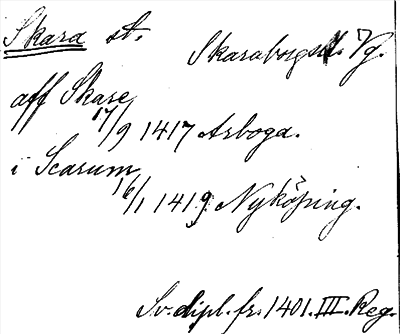 Skara st. Skaraborgs l. Vg.
aff Skare
17/9 1417 Arboga.
i Scarum
16/1 1419. Nyköping.
Sv. dipl. fr. 1401. III. Reg.